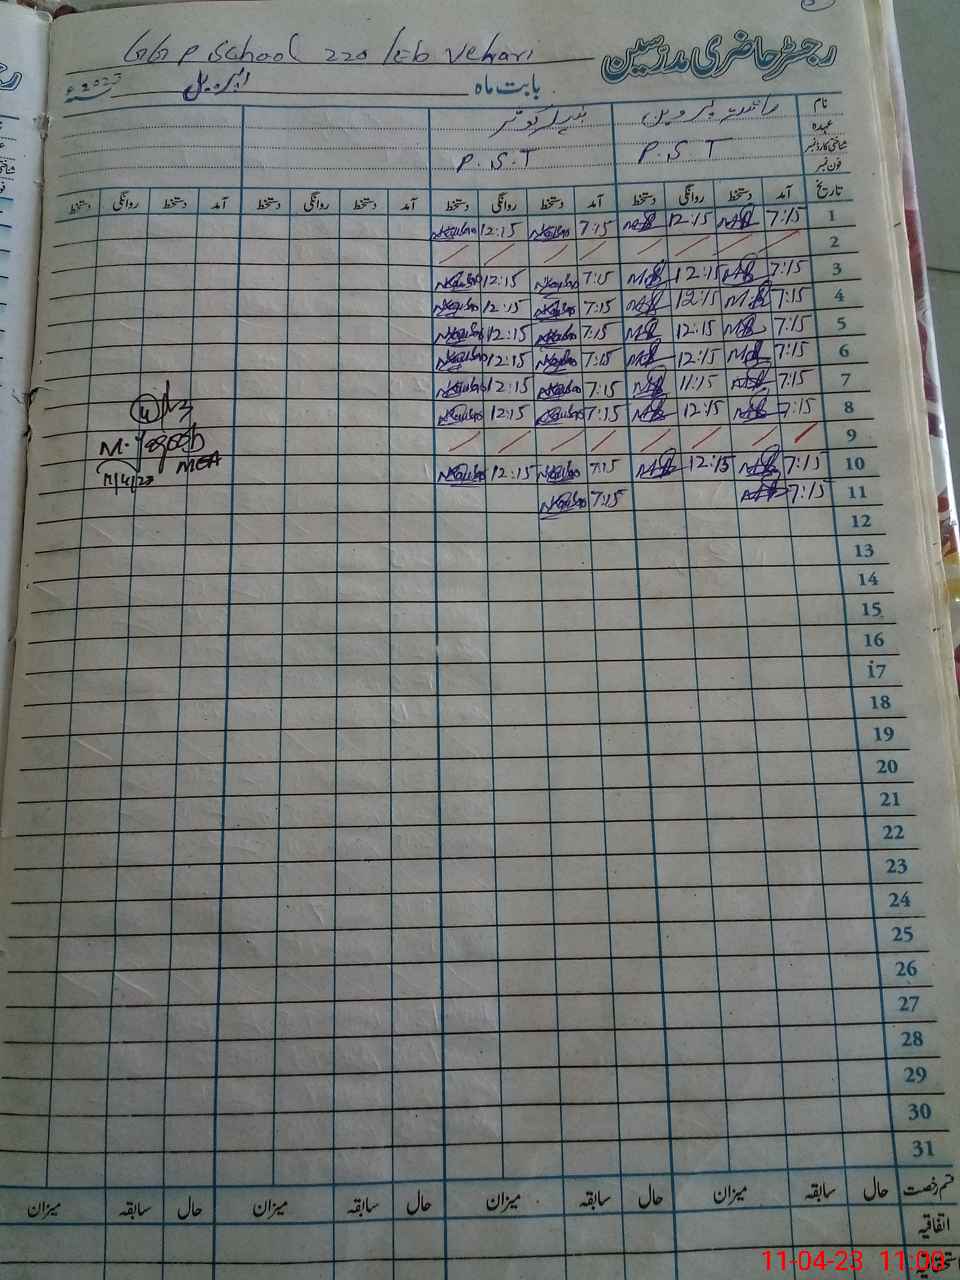 رجسٹر حاضری مدرسین
GGP School 220 /EB Vehari
بابت ماہ اپریل 2023ء
نام پروین کوثر
عہدہ
شناختی کارڈ نمبر P.S.T P.S.T
فون نمبر
تاریخ آمد دستخط روانگی دستخط آمد دستخط روانگی دستخط آمد دستخط روانگی دستخط آمد دستخط روانگی دستخط
1 7:15 12:15 7:15 12:15
2
3 7:15 12:15 7:15 12:15
4 7:15 12:15 7:15 12:15
5 7:15 12:15 7:15 12:15
6 7:15 12:15 7:15 12:15
7 7:15 11:15 7:15 12:15
8 7:15 12:15 7:15 12:15
9
10 7:15 12:15 7:15 12:15
11 7:15 7:15
M.
MEA
11/4/23
12
13
14
15
16
17
18
19
20
21
22
23
24
25
26
27
28
29
30
31
قسم رخصت حال سابقہ میزان حال سابقہ میزان حال سابقہ میزان حال سابقہ میزان
اتفاقیہ
استحقاقیہ
11-04-23 11:00